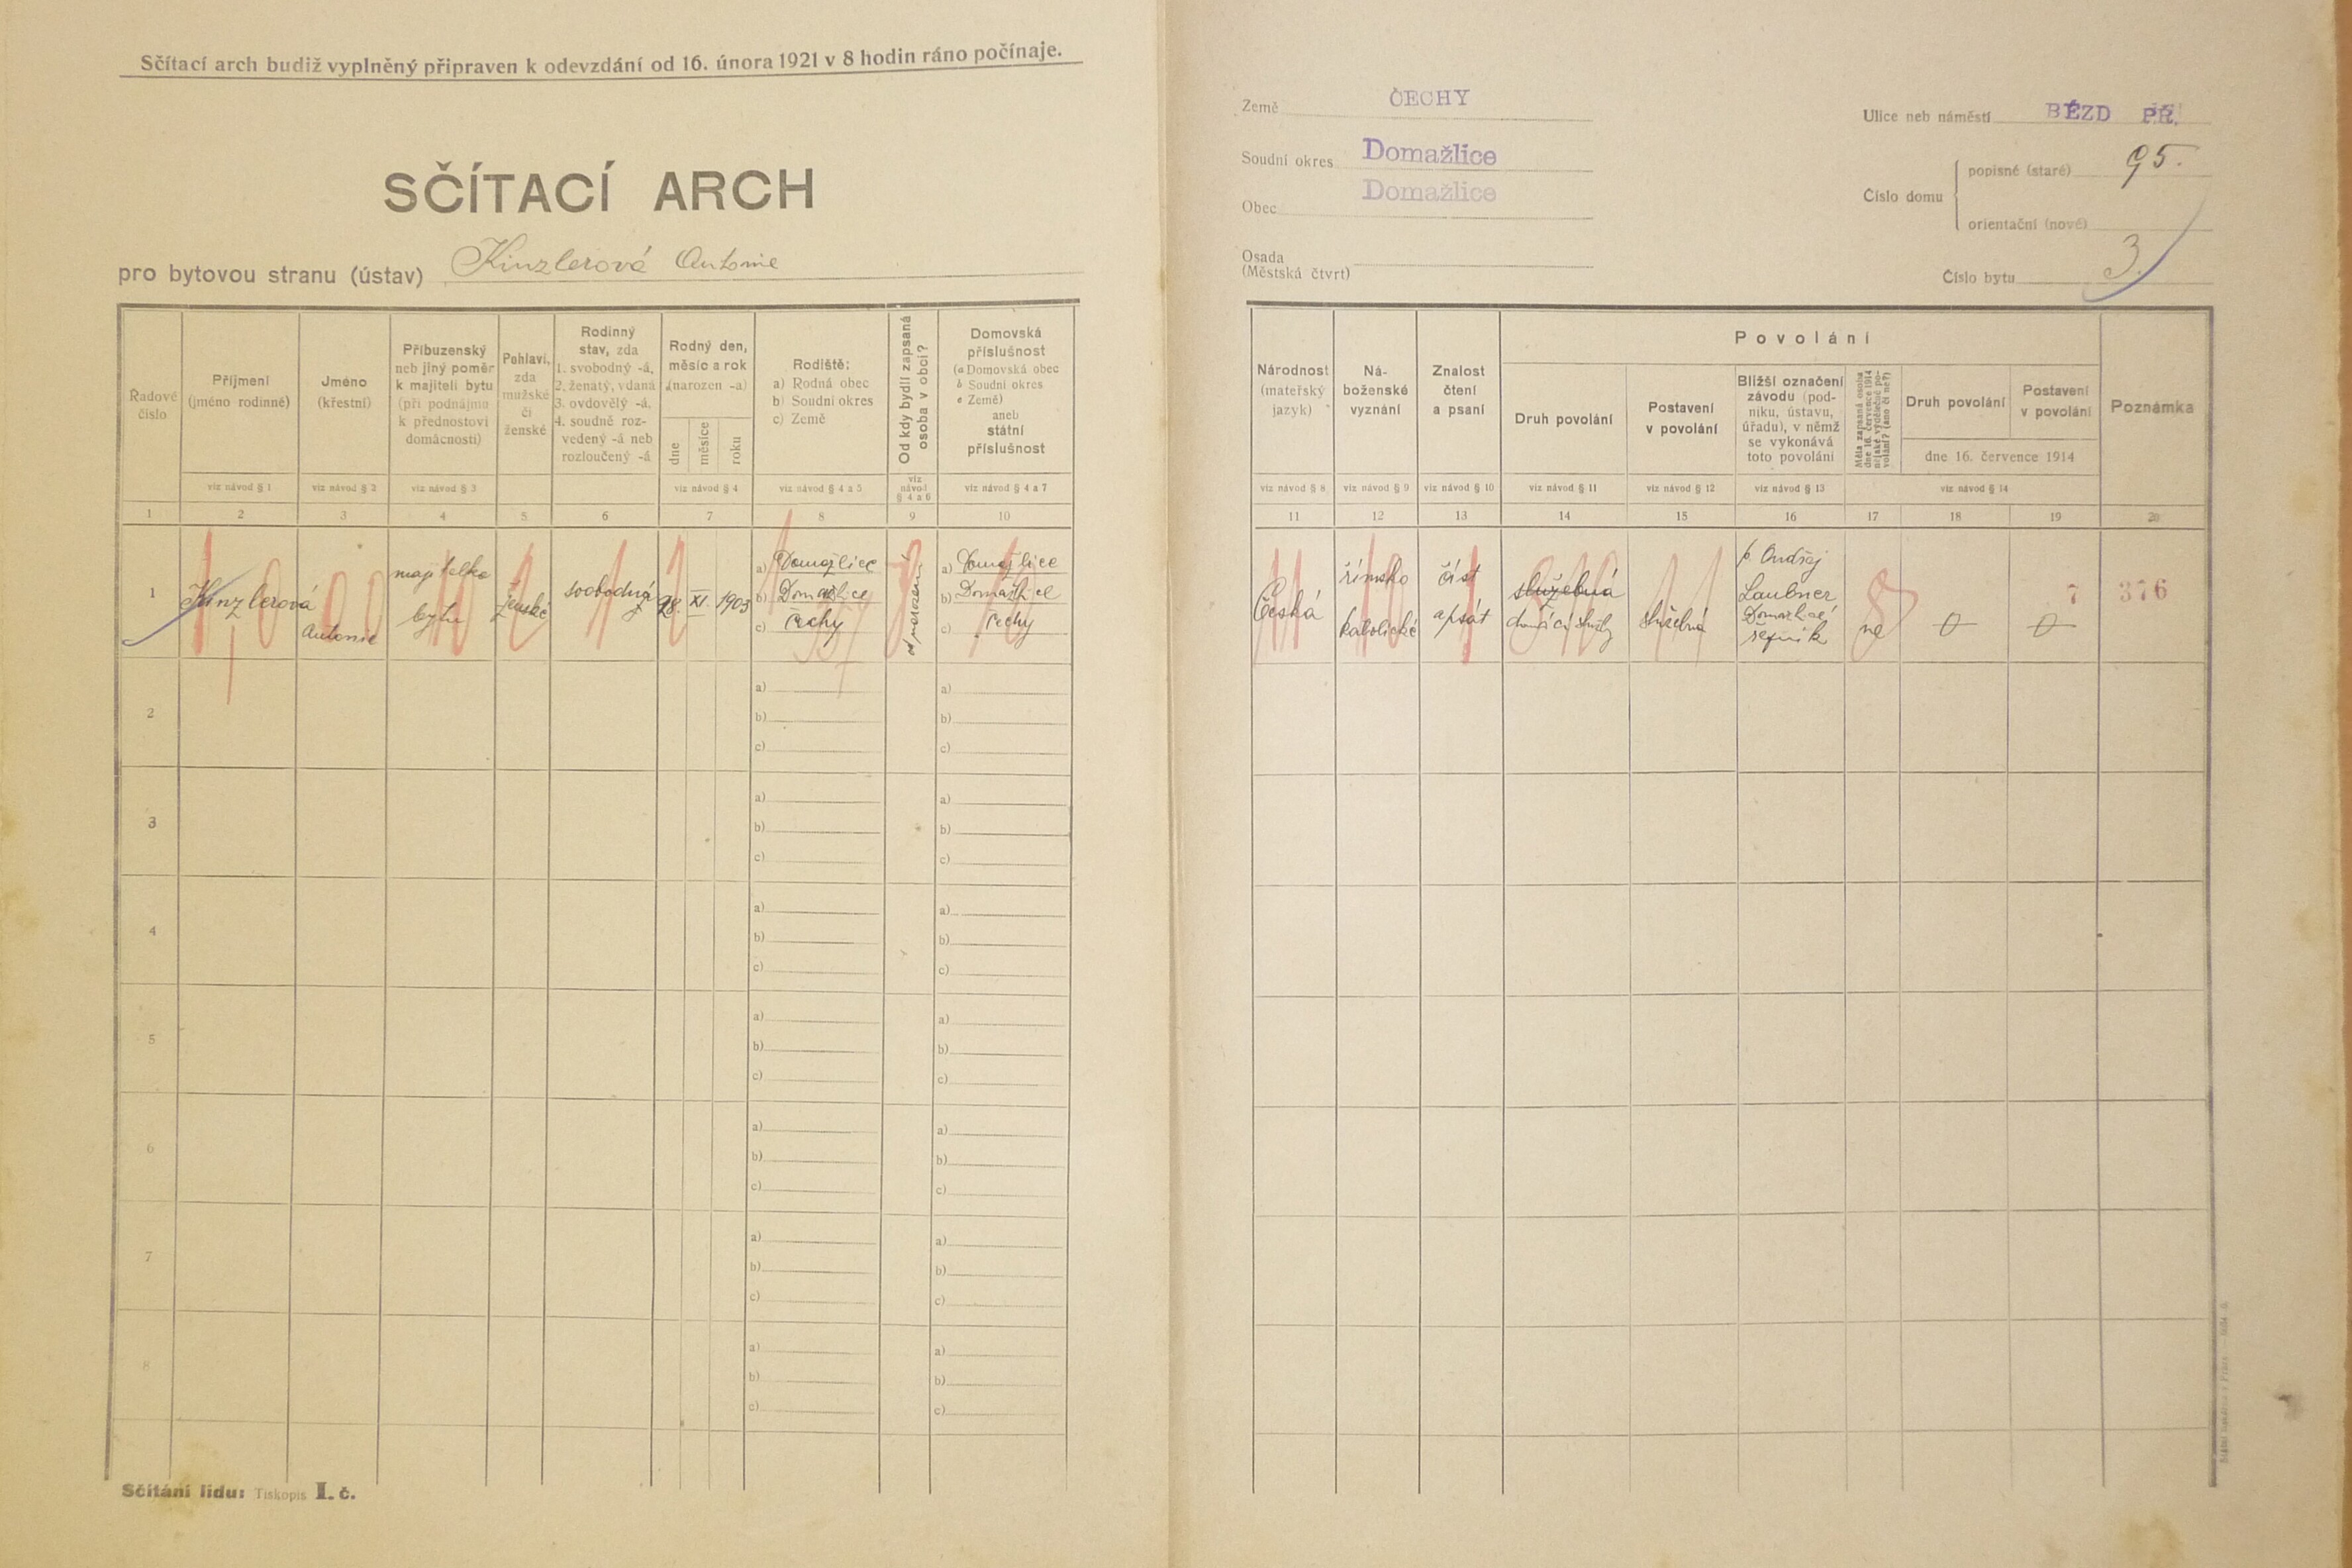 Sčítací arch budiž vyplněný připraven k odevzdání od 16. února 1921 v 8 hodin ráno počínaje.
SČÍTACÍ ARCH
pro bytovou stranu (ústav) Kinzlerová Antonie
Řadové
číslo
Příjmení
(jméno rodinné)
Jméno
(křestní)
Příbuzenský
neb jiný poměr
k majiteli bytu
(při podnájmu
k přednostovi
domácnosti)
Pohlaví,
zda
mužské
či
ženské
Rodinný
stav, zda
1. svobodný -á,
2. ženatý, vdaná
3. ovdovělý -á,
4. soudně roz-
vedený -á neb
rozloučený -á
Rodný den,
měsíc a rok
(narozen -a)
dne
měsíce
roku
Rodiště:
a) Rodná obec
b) Soudní okres
c) Země
Od kdy bydlí zapsaná
osoba v obci?
Domovská
příslušnost
(a Domovská obec
b Soudní okres
c Země)
aneb
státní
příslušnost
viz návod § 1
viz návod § 2
viz návod § 3
viz návod § 4
viz návod § 4 a 5
viz
návod
§ 4 a 6
viz návod § 4 a 7
1 2 3 4 5 6 7 8 9 10
1
Kinzlerová
Antonie
majitelka
bytu
ženské
svobodná
28. XI. 1903
a) Domažlice
b) Domažlice
c) Čechy
od narození
a) Domažlice
b) Domažlice
c) Čechy
2
a)
b)
c)
a)
b)
c)
3
a)
b)
c)
a)
b)
c)
4
a)
b)
c)
a)
b)
c)
5
a)
b)
c)
a)
b)
c)
6
a)
b)
c)
a)
b)
c)
7
a)
b)
c)
a)
b)
c)
8
a)
b)
c)
a)
b)
c)
Sčítání lidu: Tiskopis I. č.
Země ČECHY
Soudní okres Domažlice
Obec Domažlice
Osada
(Městská čtvrt)
Ulice neb náměstí BĚZD PŘ.
Číslo domu
popisné (staré) 95.
orientační (nové)
Číslo bytu 3.
Národnost
(mateřský
jazyk)
Ná-
boženské
vyznání
Znalost
čtení
a psaní
Povolání
Druh povolání
Postavení
v povolání
Bližší označení
závodu (pod-
niku, ústavu,
úřadu), v němž
se vykonává
toto povolání
Měla zapsaná osoba
dne 16. července 1914
nějaké výdělečné po-
volání? (ano či ne?)
Druh povolání
Postavení
v povolání
dne 16. července 1914
Poznámka
viz návod § 8
viz návod § 9
viz návod § 10
viz návod § 11
viz návod § 12
viz návod § 13
viz návod § 14
11 12 13 14 15 16 17 18 19 20
Česká
římsko
katolické
číst
a psát
služebná
domácí služby
služebná
p. Ondřej
Laubner
Domažlice
řezník
ne
0
0
7
376